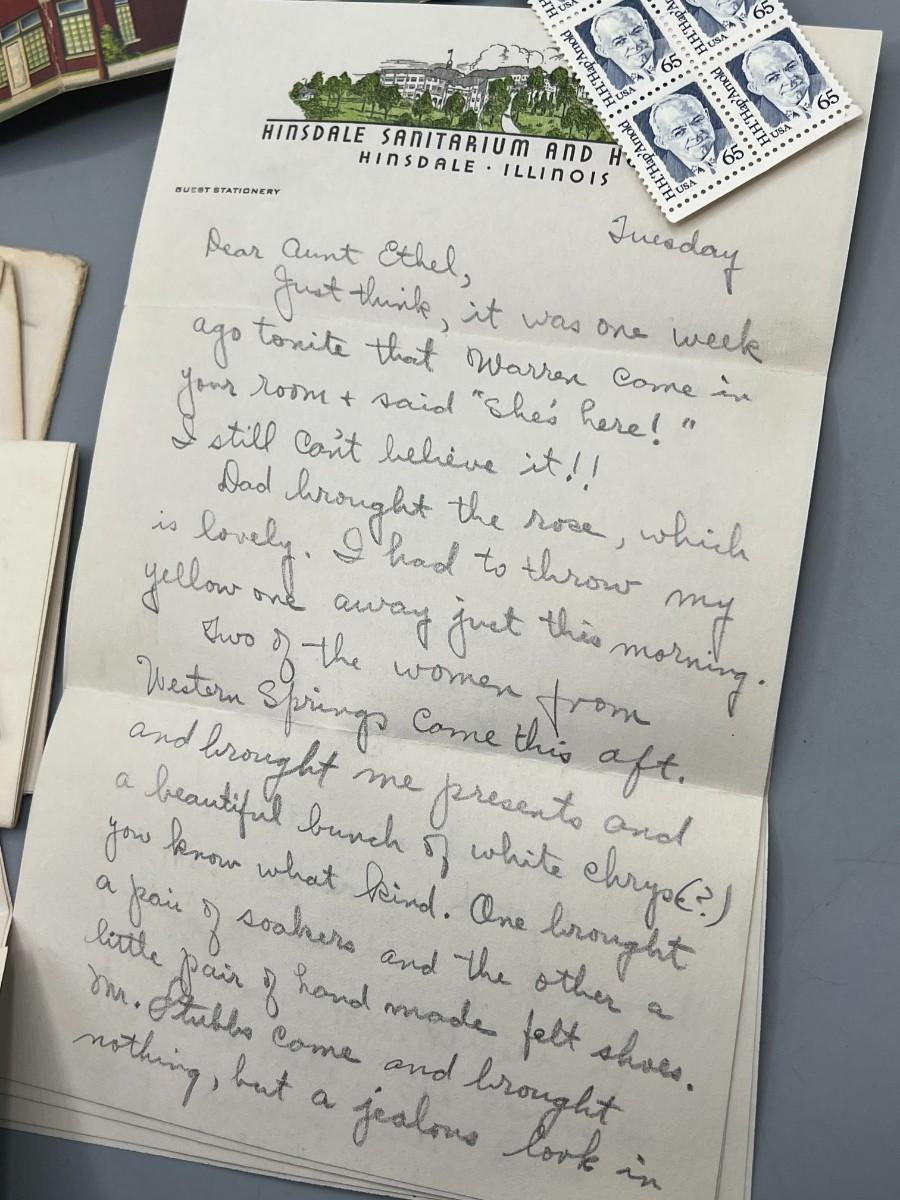 HINSDALE SANITARIUM AND H
HINSDALE · ILLINOIS
GUEST STATIONERY
H.H.'Hap'Arnold
USA
65
H.H.'Hap'Arnold
USA
65
H.H.'Hap'Arnold
USA
65
H.H.'Hap'Arnold
USA
65
Tuesday
Dear Aunt Ethel,
Just think, it was one week
ago tonite that Warren came in
your room + said "She's here!"
I still can't believe it!!
Dad brought the rose, which
is lovely. I had to throw my
yellow one away just this morning.
Two of the women from
Western Springs came this aft.
and brought me presents and
a beautiful bunch of white chrys(?)
you know what kind. One brought
a pair of soakers and the other a
little pair of hand made felt shoes.
Mr. Stubbs came and brought
nothing, but a jealous look in